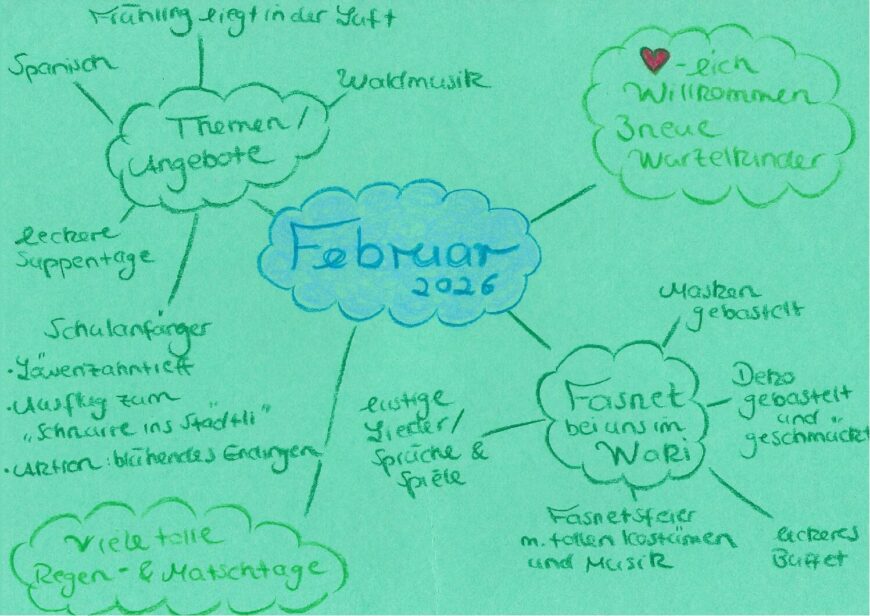 Frühling liegt in der Luft
Spanisch
Waldmusik
Themen/
Angebote
leckere
Suppentage
Schulanfänger
• Löwenzahntreff
• Ausflug zum
„Schnurre ins Städtli"
• Aktion: blühendes Endingen
♥-lich
Willkommen
3 neue
Wurzelkinder
Februar
2026
Masken
gebastelt
Fasnet
bei uns im
WaKi
Deko
gebastelt
und
geschmückt
lustige
Lieder/
Sprüche &
Spiele
Fasnetsfeier
m. tollen Kostümen
und Musik
leckeres
Buffet
Viele tolle
Regen- & Matschtage